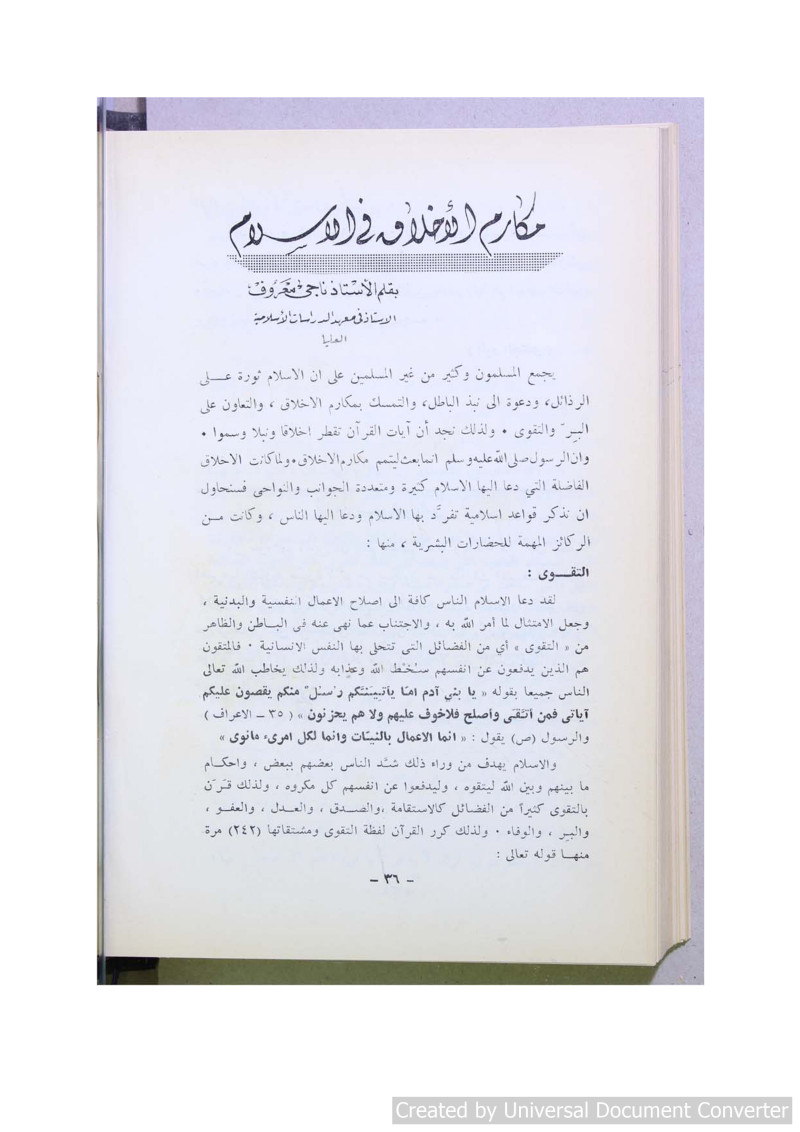 مكارم الأخلاق في الاسلام
بقلم الأستاذ ناجي معروف
الاستاذ في معهد الدراسات الاسلامية
العليا
يجمع المسلمون وكثير من غير المسلمين على ان الاسلام ثورة عـــلى
الرذائل، ودعوة الى نبذ الباطل، والتمسك بمكارم الاخلاق ، والتعاون على
البِـرّ والتقوى • ولذلك نجد أن آيات القرآن تقطر اخلاقا ونبلا وسموا •
وان الرسول صلى الله عليه وسلم انما بعث ليتمم مكارم الاخلاق • ولما كانت الاخلاق
الفاضلة التي دعا اليها الاسلام كثيرة ومتعددة الجوانب والنواحى فسنحاول
ان نذكر قواعد اسلامية تفرَّد بها الاسلام ودعا اليها الناس ، وكانت مــن
الركائز المهمة للحضارات البشرية ، منها :
التقــوى :
لقد دعا الاسلام الناس كافة الى اصلاح الاعمال النفسية والبدنية ،
وجعل الامتثال لما أمر الله به ، والاجتناب عما نهى عنه فى البــاطن والظاهر
من « التقوى » أي من الفضائل التى تتحلى بها النفس الانسانية • فالمتقون
هم الذين يدفعون عن انفسهم سخط الله وعذابه ولذلك يخاطب الله تعالى
الناس جميعا بقوله « يا بنى آدم امّا يأتينّكم رسل منكم يقصون عليكم
آياتى فمن اتّقى وأصلح فلاخوف عليهم ولا هم يحزنون » ( ٣٥ – الاعراف )
والرسول (ص) يقول : « انما الاعمال بالنيّات وانما لكل امرىء مانوى »
والاسلام يهدف من وراء ذلك شدّ الناس بعضهم ببعض ، واحكــام
ما بينهم وبين الله ليتقوه ، وليدفعوا عن انفسهم كل مكروه ، ولذلك قَـرَن
بالتقوى كثيراً من الفضائل كالاستقامة ،والصــدق ، والعــدل ، والعفــو ،
والبـر ، والوفاء • ولذلك كرر القرآن لفظة التقوى ومشتقاتها (٢٤٢) مرة
منهــا قوله تعالى :
– ٣٦ –
Created by Universal Document Converter